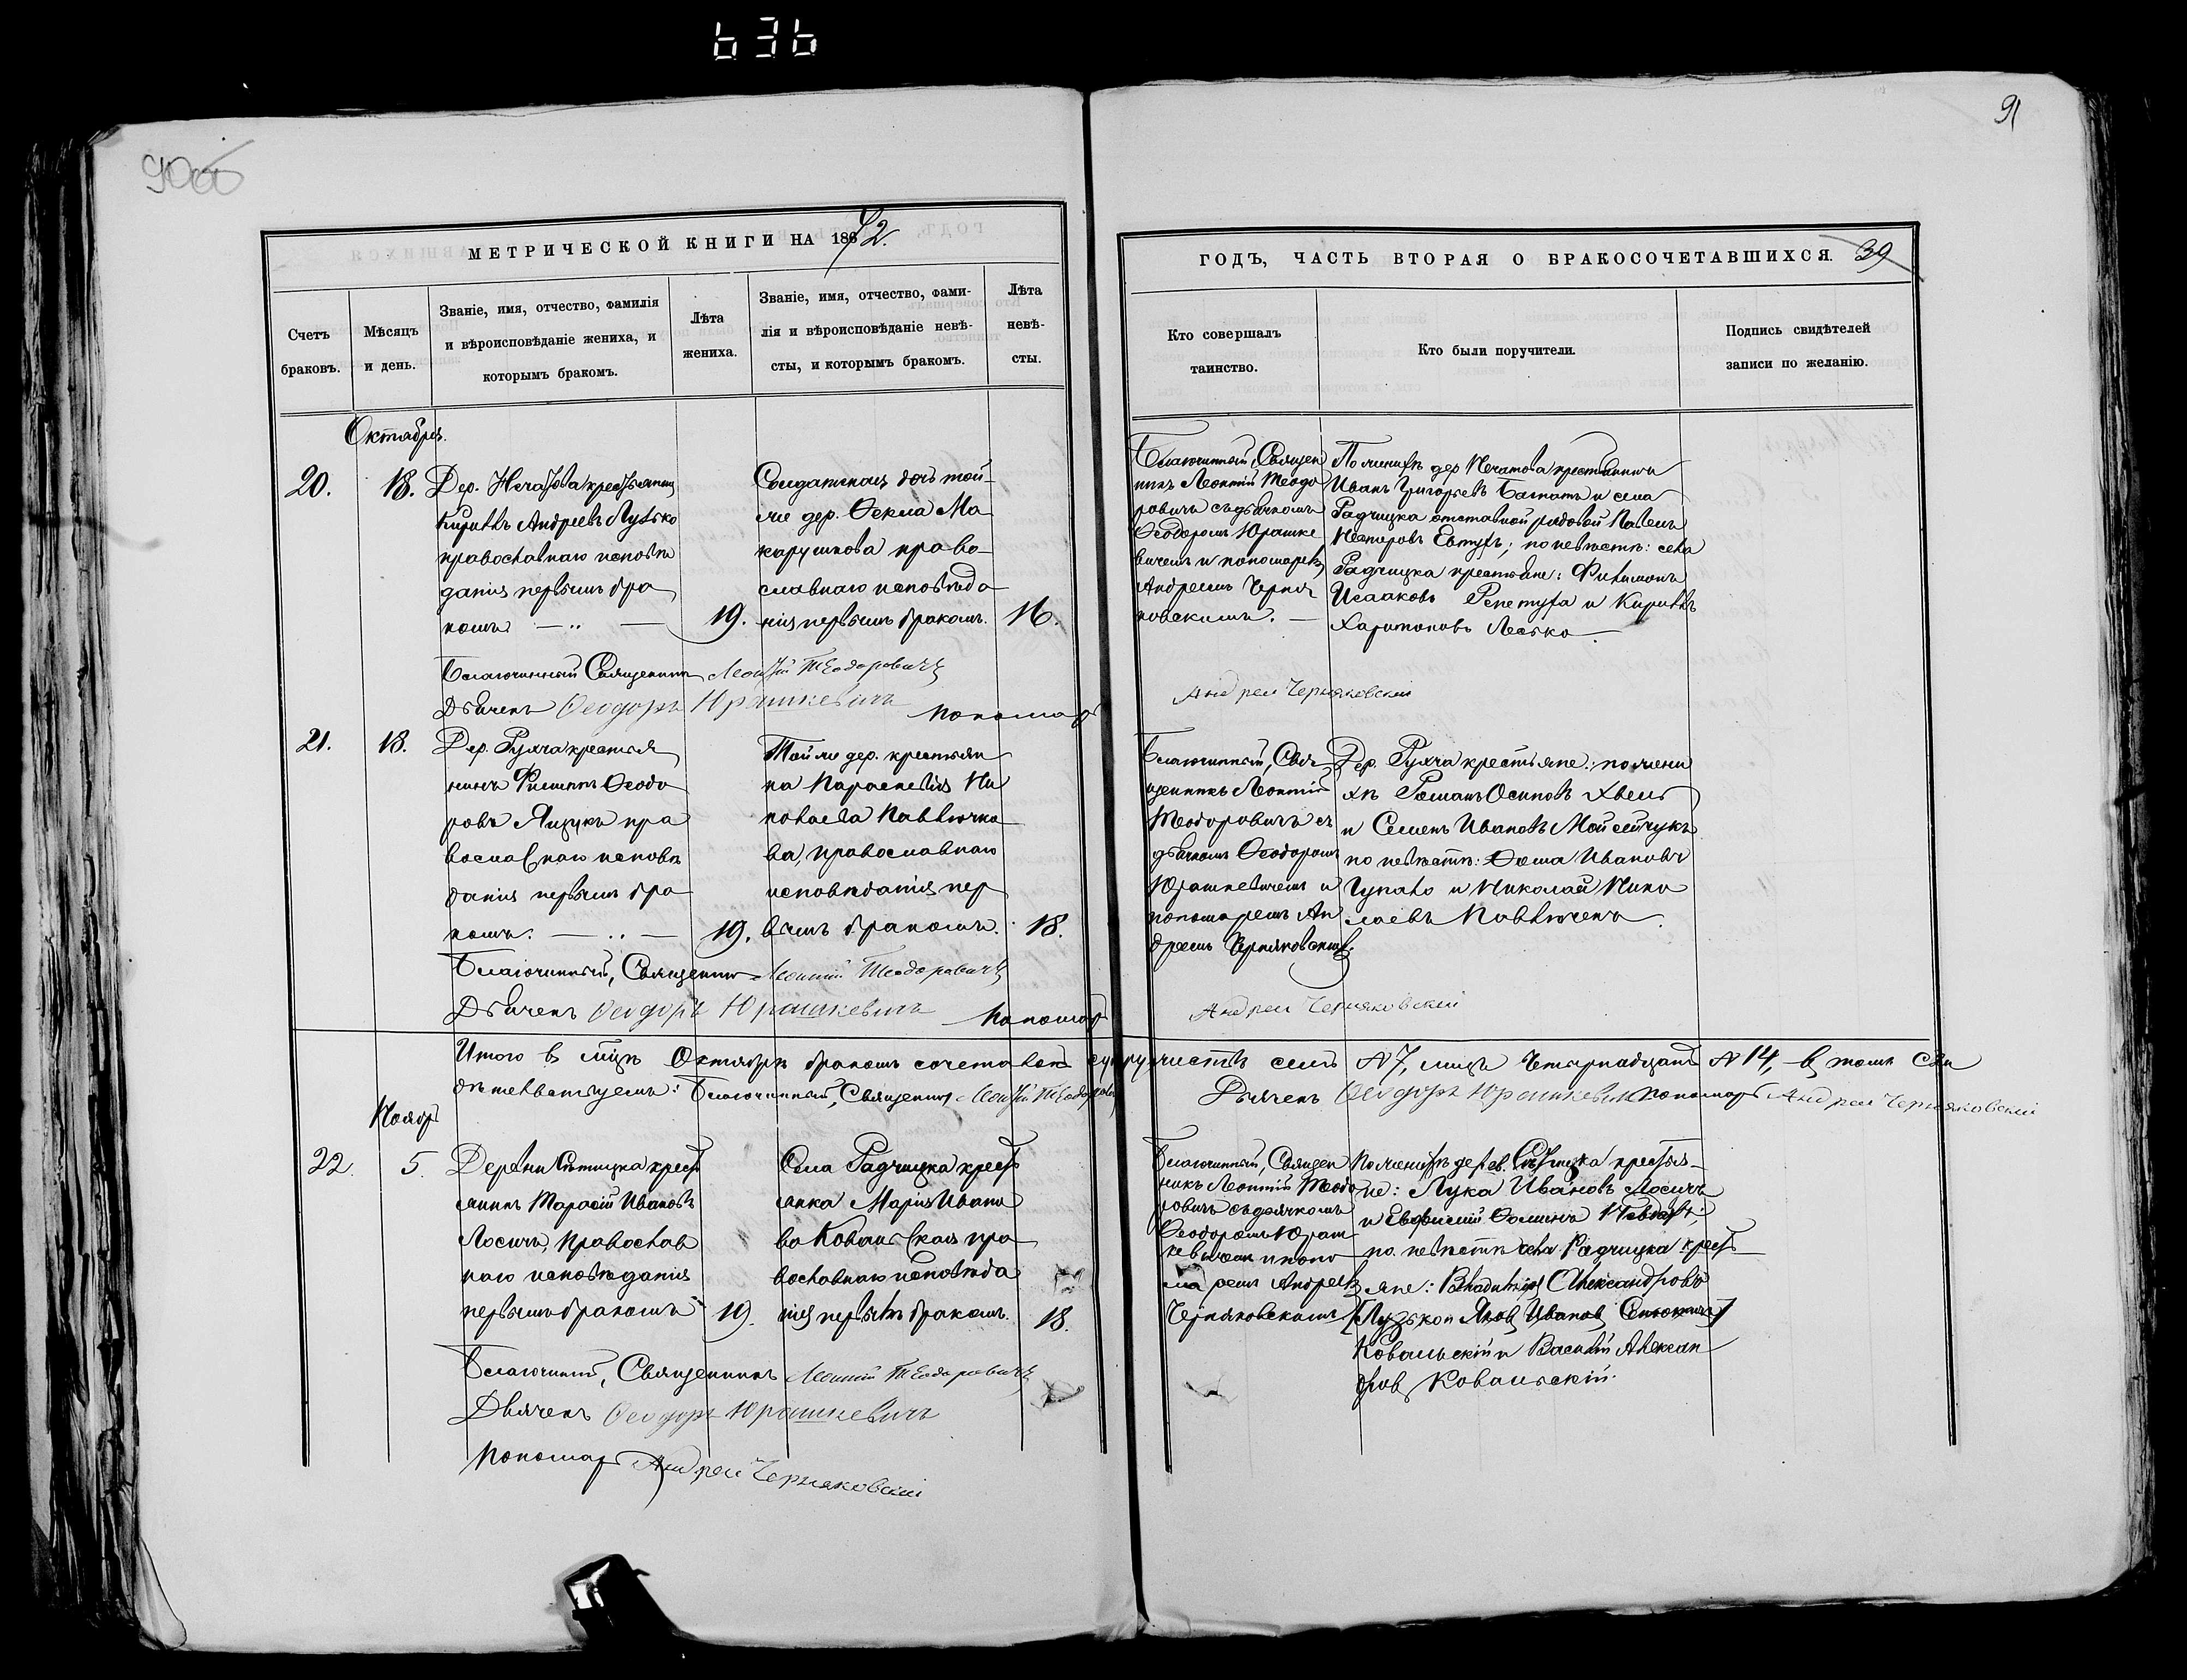 636
90об
91
МЕТРИЧЕСКОЙ КНИГИ НА 1872.
Счетъ
браковъ.
Мѣсяцъ
и день.
Званіе, имя, отчество, фамилія
и вѣроисповѣданіе жениха, и
которымъ бракомъ.
Лѣта
жениха.
Званіе, имя, отчество, фами-
лія и вѣроисповѣданіе невѣ-
сты, и которымъ бракомъ.
Лѣта
невѣ-
сты.
ГОДЪ, ЧАСТЬ ВТОРАЯ О БРАКОСОЧЕТАВШИХСЯ. 39
Кто совершалъ
таинство.
Кто были поручители.
Подпись свидѣтелей
записи по желанію.
Октября.
20.
18.
Дер. Нечатова крестьянинъ
Кириллъ Андреевъ Лутько
православнаго исповѣ
данія первымъ бра
комъ.
19.
Солдатская дочь той-
же дер. Ѳекла Ма
карушкова право
славнаго исповѣда
нія первымъ бракомъ.
16.
Благочинный, Священ
никъ Леонтій Теодо
ровичъ съ дьячкомъ
Ѳеодоромъ Юрашке
вичемъ и пономаремъ
Андреемъ Черня
ковскимъ.
По женихѣ дер Нечатова крестьянинъ
Иванъ Григорьевъ и села
Радчицка отставной рядовой Павелъ
Нестеровъ Евтухъ; по невѣстѣ: села
Радчицка крестьяне: Филимонъ
Исааковъ Репетуха и Кириллъ
Харитоновъ Лесько.
Благочинный Священникъ Леонтій Теодоровичъ
Дьячекъ Ѳеодоръ Юрашкевичъ
Пономарь Андрей Черняковскій
21.
18.
Дер. Рухча крестья
нинъ Филиппъ Ѳеодо
ровъ Ящукъ пра
вославнаго исповѣ
данія первымъ бра
комъ.
19.
Той же дер. крестьян
ка Параскевія Ни
колаева Павлючко
ва, православнаго
исповѣданія пер
вымъ бракомъ.
18.
Благочинный, Свя
щенникъ Леонтій
Теодоровичъ съ
дьячкомъ Ѳеодоромъ
Юрашкевичемъ и
пономаремъ Ан
дреемъ Черняковскимъ.
Дер. Рухча крестьяне: по жени
хѣ Романъ Осиповъ Хвесь
и Семенъ Ивановъ Мойсейчукъ
по невѣстѣ: Ѳома Ивановъ
и Николай Нико
лаевъ Павлюченъ.
Благочинный, Священникъ Леонтій Теодоровичъ
Дьячекъ Ѳеодоръ Юрашкевичъ
Пономарь Андрей Черняковскій
Итого в м͠цѣ Октябрѣ бракомъ сочетовалось супружествъ семь № 7, лицъ четырнадцать № 14, в томъ сви
дѣтельствуемъ: Благочинный, Священникъ Леонтій Теодоровичъ Дьячекъ Ѳеодоръ Юрашкевичъ Пономарь Андрей Черняковскій
Ноябрь
22.
5.
Деревни Ситицка кресть
янинъ Тарасій Ивановъ
Лосичъ, православ
наго исповѣданія
первымъ бракомъ
19.
Села Радчицка кресть
янка Марія Ивано
ва Ковальская пра
вославнаго исповѣда
нія первымъ бракомъ.
18.
Благочинный, Священ
никъ Леонтій Теодо
ровичъ съ дьячкомъ
Ѳеодоромъ Юраш
кевичемъ и поно
маремъ Андреемъ
Черняковскимъ
По женихѣ дерев. Ситицка крестья
не: Лука Ивановъ Лосичъ
и Евфимій Ѳоминъ
по невѣстѣ села Радчицка кресть
яне: Владиміръ Александровъ
Лузько и Яковъ Ивановъ
Ковальскій и Василій Алексан
дровъ Ковальскій.
Благочинный, Священникъ Леонтій Теодоровичъ
Дьячекъ Ѳеодоръ Юрашкевичъ
Пономарь Андрей Черняковскій